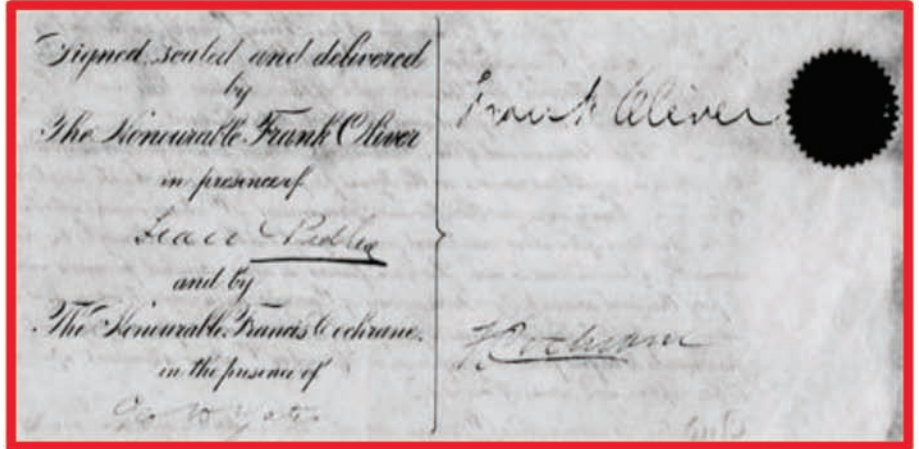 Signed, sealed and delivered
by
The Honourable Frank Oliver
in presence of
Pedley
and by
The Honourable Francis Cochrane.
in the presence of
Frank Oliver
F Cochrane